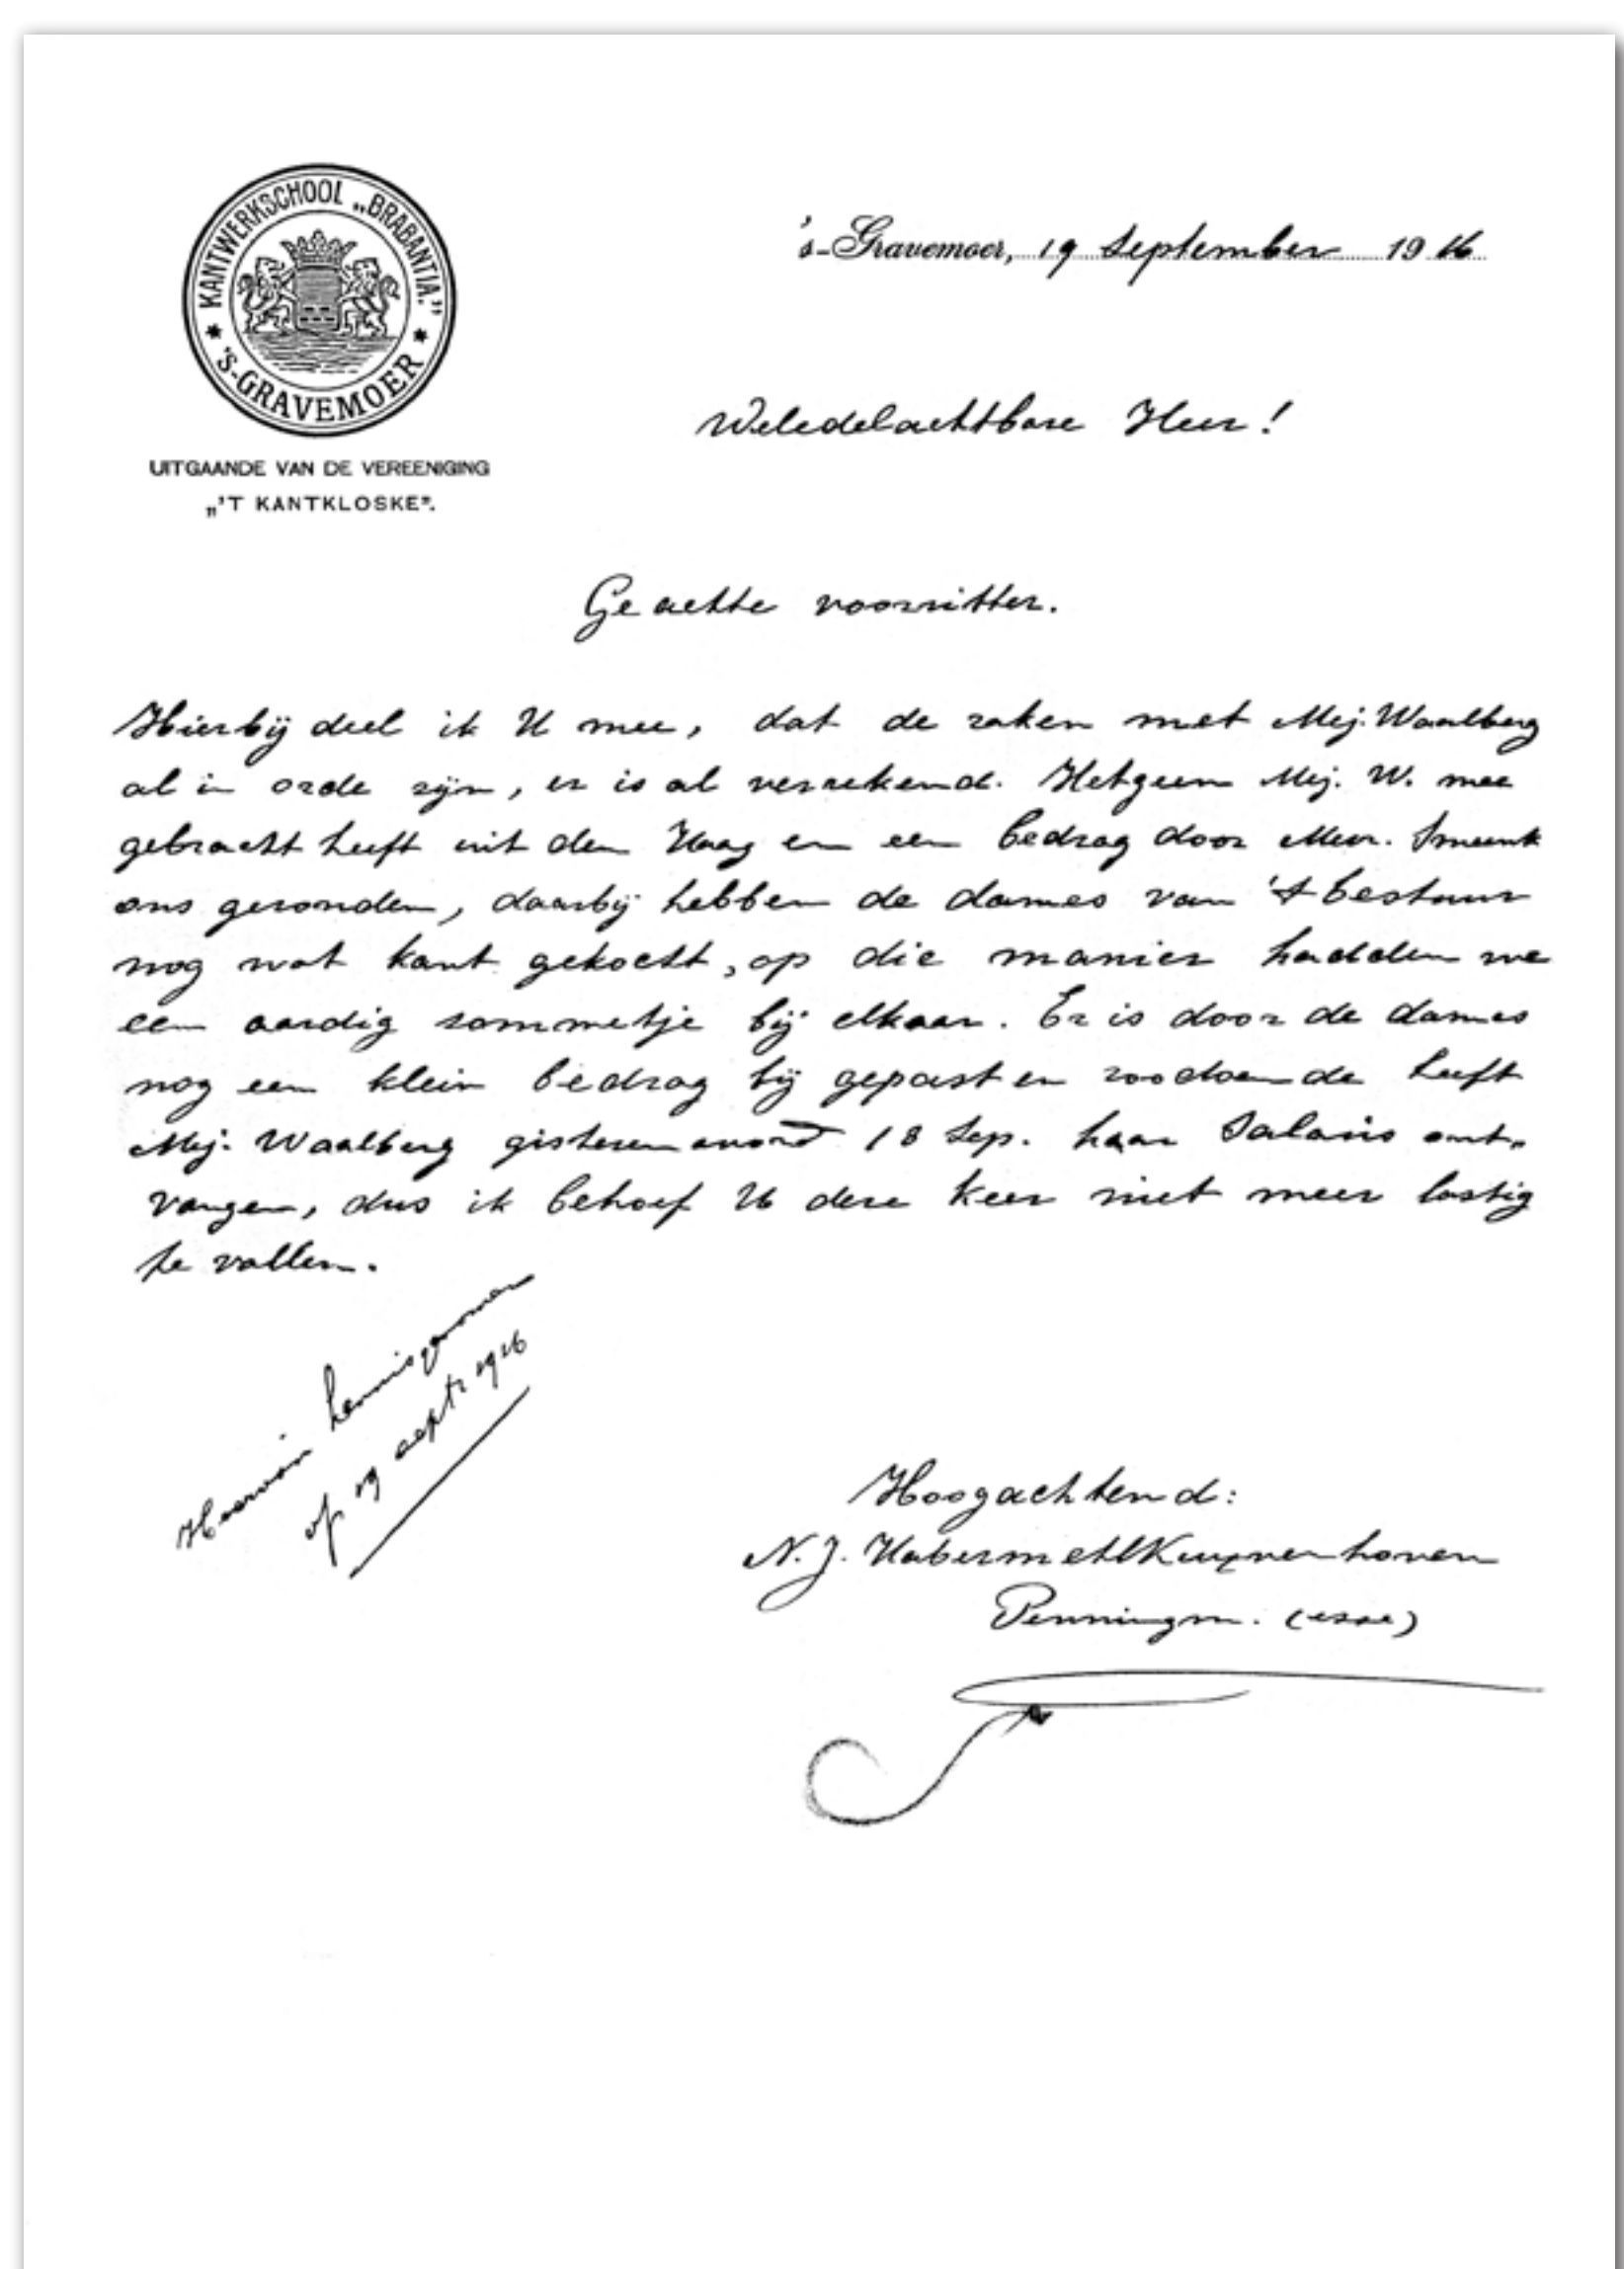 KANTWERKSCHOOL „BRABANTIA."
'S-GRAVEMOER
UITGAANDE VAN DE VEREENIGING
„'T KANTKLOSKE".
's-Gravemoer, 19 September 1916
Weledelachtbare Heer!
Geachte voorzitter.
Hierbij deel ik U mee, dat de zaken met Mej. Waalberg
al in orde zijn, er is al verrekend. Hetgeen Mej. W. mee
gebracht heeft uit den Haag en een bedrag door Mevr. Smeenk
ons gezonden, daarbij hebben de dames van 't bestuur
nog wat kant gekocht, op die manier hadden we
een aardig sommetje bij elkaar. Er is door de dames
nog een klein bedrag bij gepast en zoodoende heeft
Mej. Waalberg gisteren avond 18 Sep. haar Salaris ont„
vangen, dus ik behoef U deze keer niet meer lastig
te vallen.
Hiervan kennisgenomen
op 19 septr 1916
Hoogachtend:
N. J. Habermehl Kuypenhoven
Penningm. (esse)